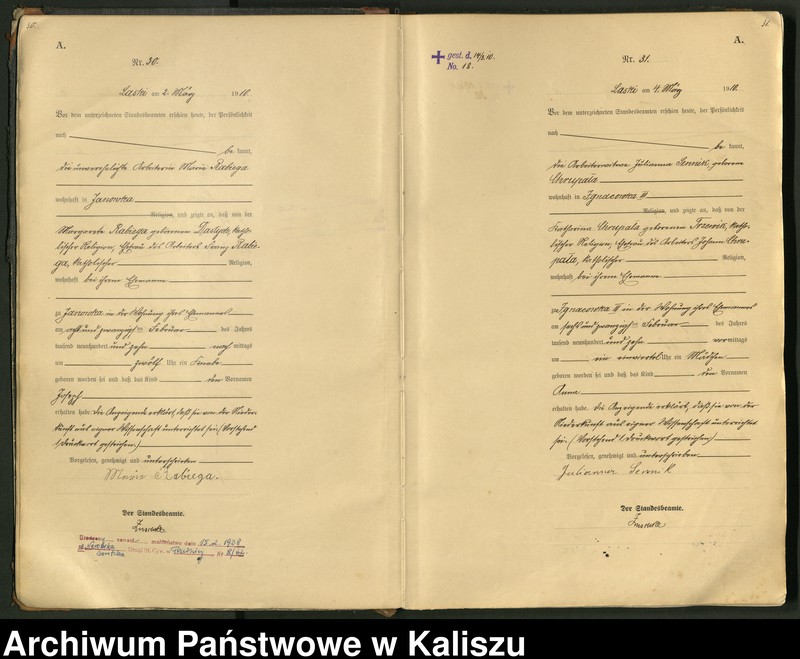 A.
Nr. 30.
Laski am 2. März 1910.
Vor dem unterzeichneten Standesbeamten erschien heute, der Persönlichkeit
nach
be kannt,
die unverehelichte Arbeiterin Maria Rabiega
wohnhaft in Janowka
Religion, und zeigte an, daß von der
Margareta Rabiega geborenen katho-
lischer Religion, Ehefrau des Arbeiters Franz Rabie-
ga, katholischer Religion,
wohnhaft bei ihrem Ehemanne
zu Janowka in der Wohnung ihres Ehemannes
am acht und zwanzigsten Februar des Jahres
tausend neunhundert und zehn nachmittags
um zwölf Uhr ein Knabe
geboren worden sei und daß das Kind den Vornamen
Joseph
erhalten habe. Die Anzeigende erklärt, daß sie von der Nieder-
kunft aus eigener Wissenschaft unterrichtet sei. (Vorstehend
1 Druckwort gestrichen.)
Vorgelesen, genehmigt und unterschrieben
Maria Rabiega.
Der Standesbeamte.
małżeństwo dnia 1938
Nr
31
A.
gest. d. 14/3.10.
No. 18.
Nr. 31.
Laski am 4. März 1910.
Vor dem unterzeichneten Standesbeamten erschien heute, der Persönlichkeit
nach
be kannt,
die Arbeiterwitwe Julianna Sennik, geborene
Chrupala
wohnhaft in Ignacowka III
Religion, und zeigte an, daß von der
Katharina Chrupala geborenen katho-
lischer Religion, Ehefrau des Arbeiters Johann Chru-
pala, katholischer Religion,
wohnhaft bei ihrem Ehemanne
zu Ignacowka III in der Wohnung ihres Ehemannes
am sechs und zwanzigsten Februar des Jahres
tausend neunhundert und zehn vormittags
um ein einviertel Uhr ein Mädchen
geboren worden sei und daß das Kind den Vornamen
Anna
erhalten habe. Die Anzeigende erklärt, daß sie von der
Niederkunft aus eigener Wissenschaft unterrichtet
sei. (Vorstehend 1 Druckwort gestrichen)
Vorgelesen, genehmigt und unterschrieben
Julianna Sennik
Der Standesbeamte.
Archiwum Państwowe w Kaliszu